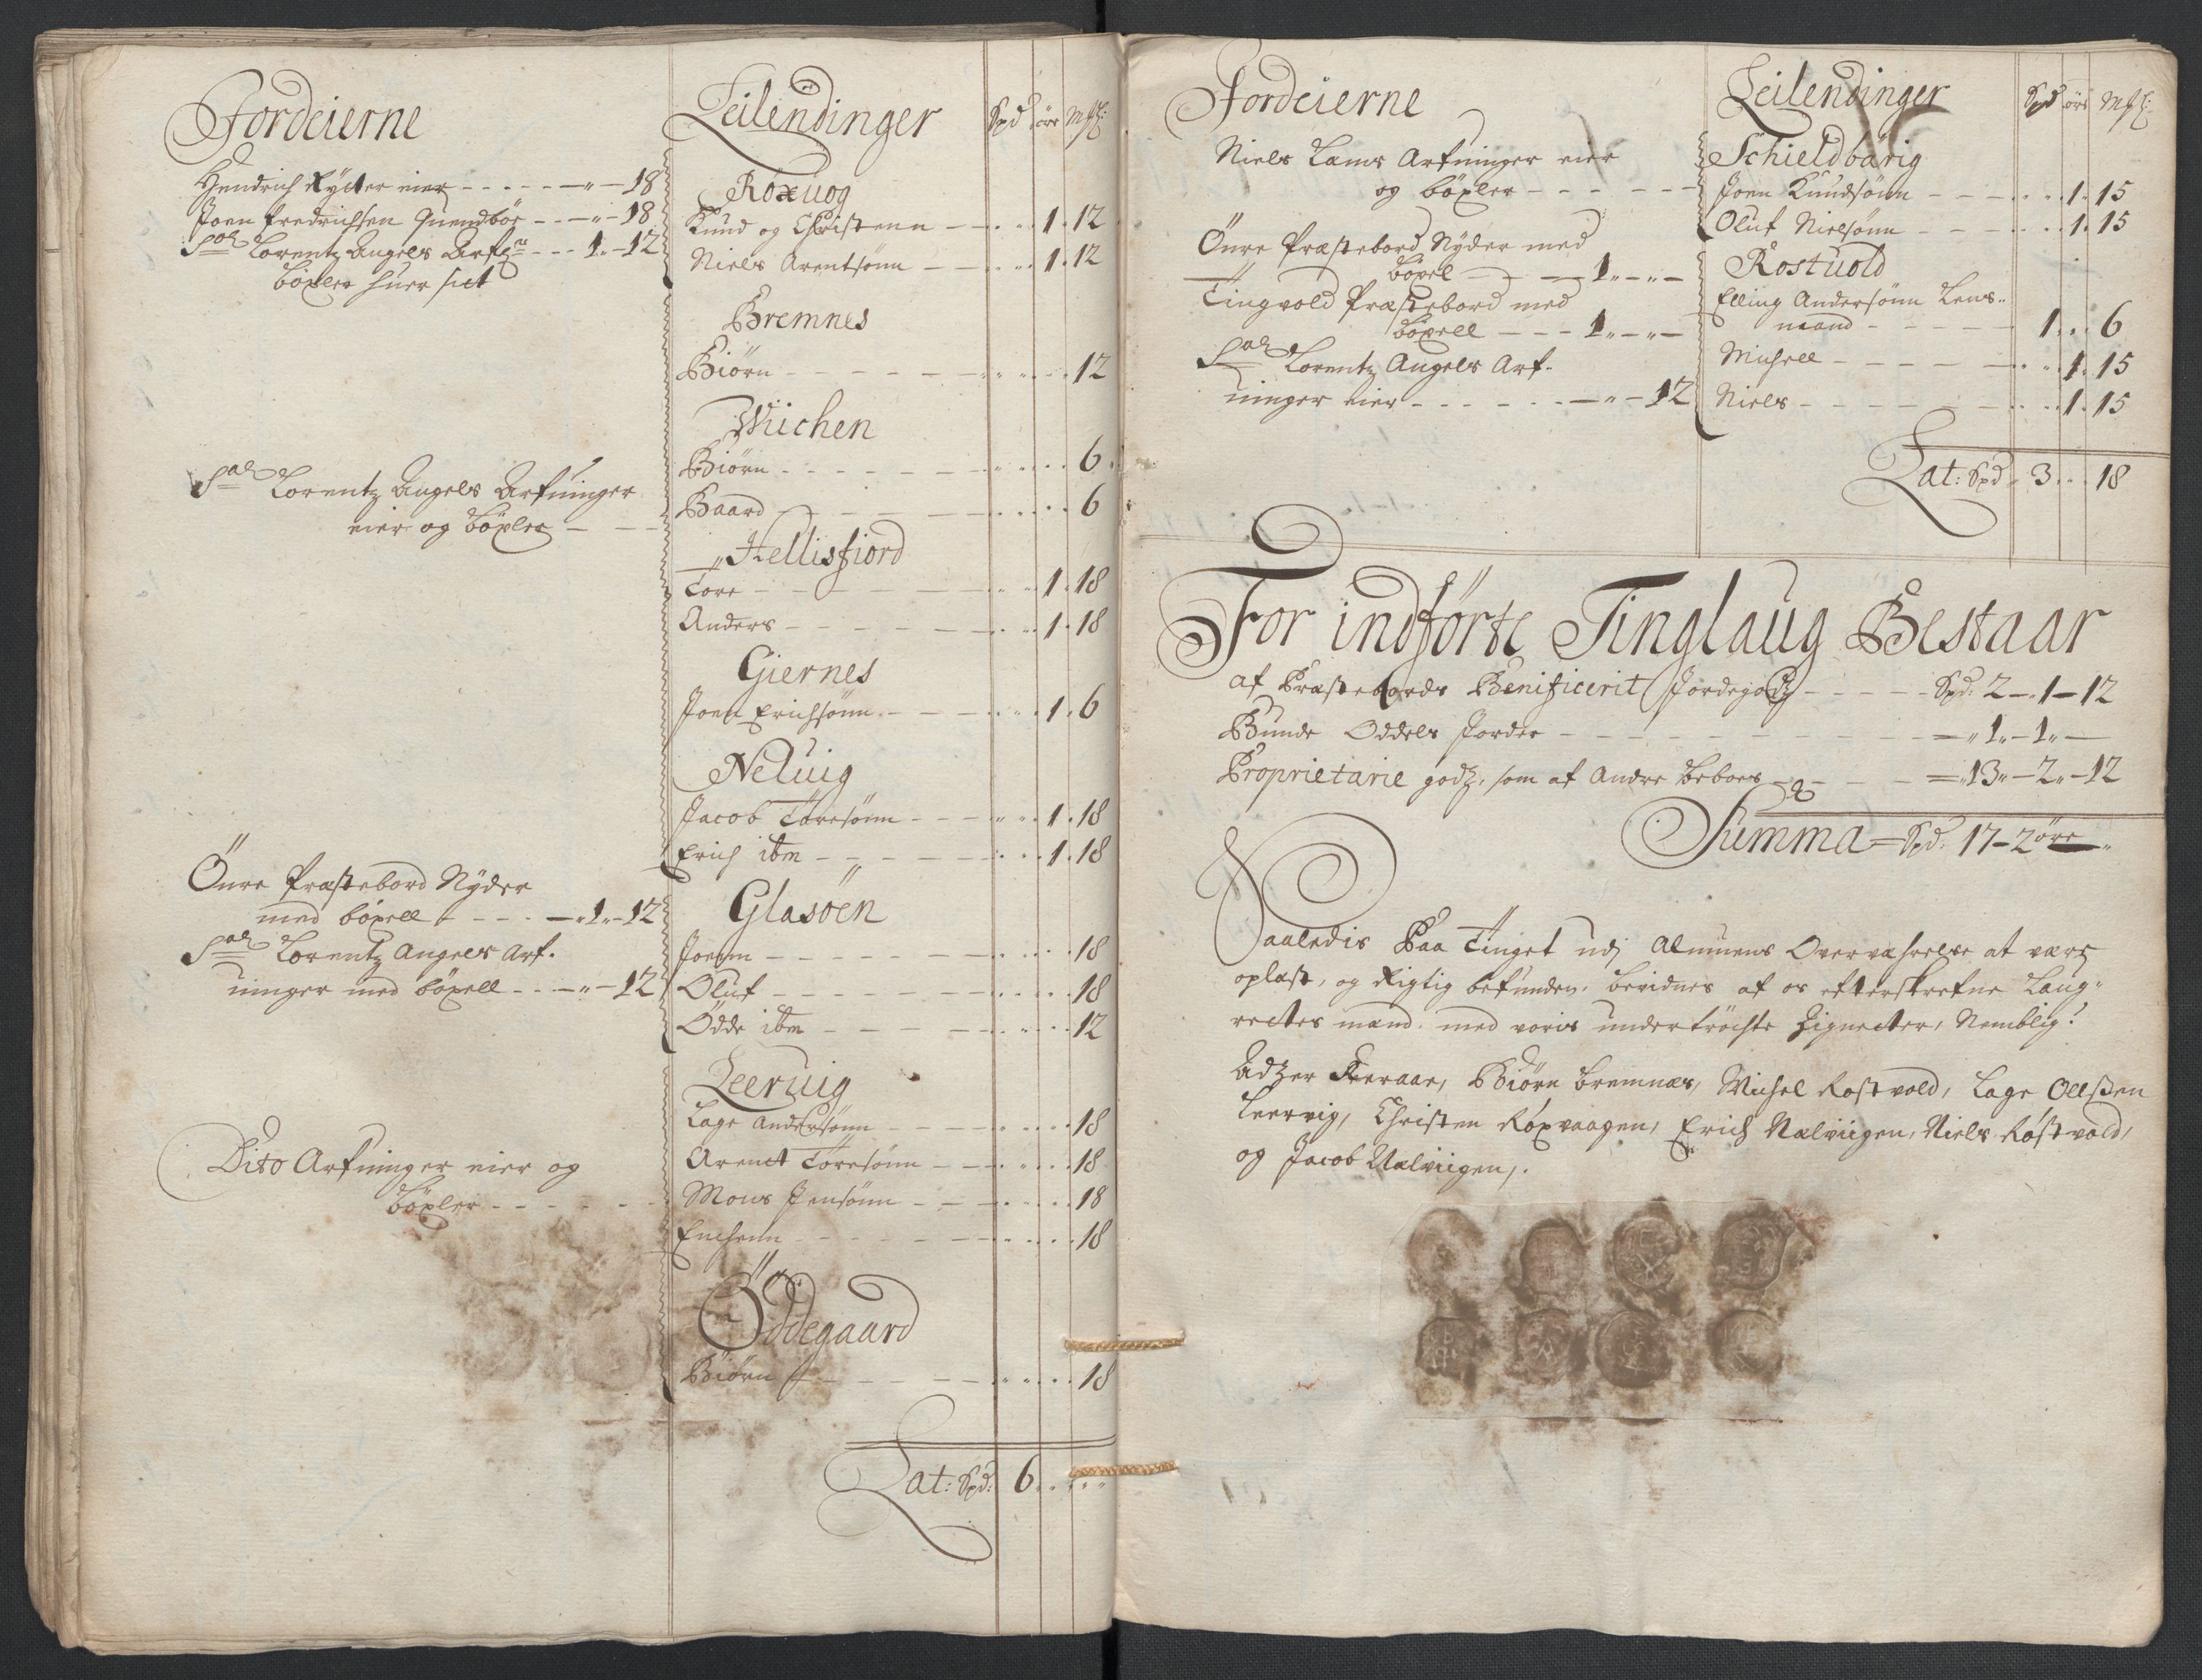 Jordeierne
Hendrich Rytter eier - - - - - „ - 18
Joen Fredrichsen Quendbøe - - - „ - 18
Sal Lorentz Angels Arfg - - - 1 „ - 12
bøxler huer sit
Sal Lorentz Angels Arfuinger
eier og bøxler - -
Önre Præstebord Nÿder
med bøxell - - - - „ 1 „ - 12
Sal Lorentz Angels Arf-
uinger med bøxell - - - „ - 12
Dito Arfuinger eier og
bøxler - - - - -
Leilendinger Spd öre Mkl:
Röxuog
Knud og Christenn - - 1 . 12
Niels Arentsönn - - 1 . 12
Bremnes
Biörn - - - - - - 12
Wiichen
Biörn - - - - - - 6
Baard - - - - - 6
Hellisfiord
Tore - - - - - 1 . 18
Anders - - - - - 1 . 18
Giernes
Joen Erichsönn - - - 1 . 6
Neluig
Jacob Toresönn - - - 1 . 18
Erich ibm - - - - - 1 . 18
Glasöen
Joenn - - - - - - 18
Oluf - - - - - - 18
Odde ibm - - - - - 12
Leeruig
Lage Andersönn - - - - 18
Arent Toresönn - - - 18
Mons Jensönn - - - 18
Enchenn - - - - - 18
Öddegaard
Biörn - - - - - - 18
Lat: Spd: 6 . . „ „
Jordeierne
Niels Lams Arfuinger eier
og bøxler - - - - - -
Önre Præstebord Nÿder med
bøxel - - - 1 „ - „ -
Tingvold Præstebord med
bøxell - - - 1 „ - „ -
Sal Lorentz Angels Arf-
uinger eier - - - - - „ - 12
Leilendinger Spd öre Mkl:
Schieldbårig
Joen Knudsönn - - - 1 . 15
Oluf Nielsönn - - - 1 . 15
Rostuold
Elling Andersönn Lens-
mand - - - - - 1 . . . 6
Michell - - - - - 1 . 15
Niels - - - - - - 1 . 15
Lat: Spd „ 3 . . . 18
For indförte Tinglaug Bestaar
af Præstebords Benificerit Jordegodz - - - - - Spd: 2 - 1 - 12
Bunde Oddels Jorder - - - - - - - „ 1 „ - 1 „ -
Proprietarie godz, som af Andre beboes - - - - „ 13 „ - 2 „ - 12
Summa = Spd: 17 - 2 öre „
Saaledis Paa Tinget udj Almuens Overværelse at være
oplæst, og Rigtig befunden. bevidnes af os efterskrefne Laug-
rettes mænd. med voris undertröchte Zigneter, Nemblig!
Adzer Kvernaae, Biörn Bremnæs, Michel Rostvold, Lage Ollssen
Leervig, Christen Röxvaagen, Erich Nælviigen, Niels Röstvold,
og Jacob Nælviigen,.